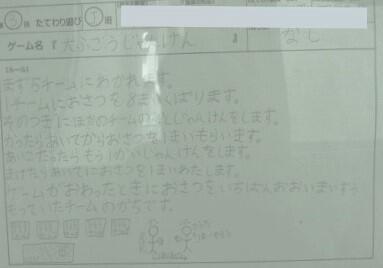 ③班 たてわり遊び
ゲーム名『大ふごうじゃんけん』 なし
【ルール】
まず5チームにわかれます。
1チームにおさつを8まいくばります。
そのつぎにほかのチームの人とじゃんけんをします。
かったらあいてからおさつを1まいもらいます。
あいこだったらもう1かいじゃんけんをします。
まけたらあいてにおさつを1まいわたします。
ゲームがおわったときにおさつをいちばんおおいまいすう
もっていたチームのかちです。